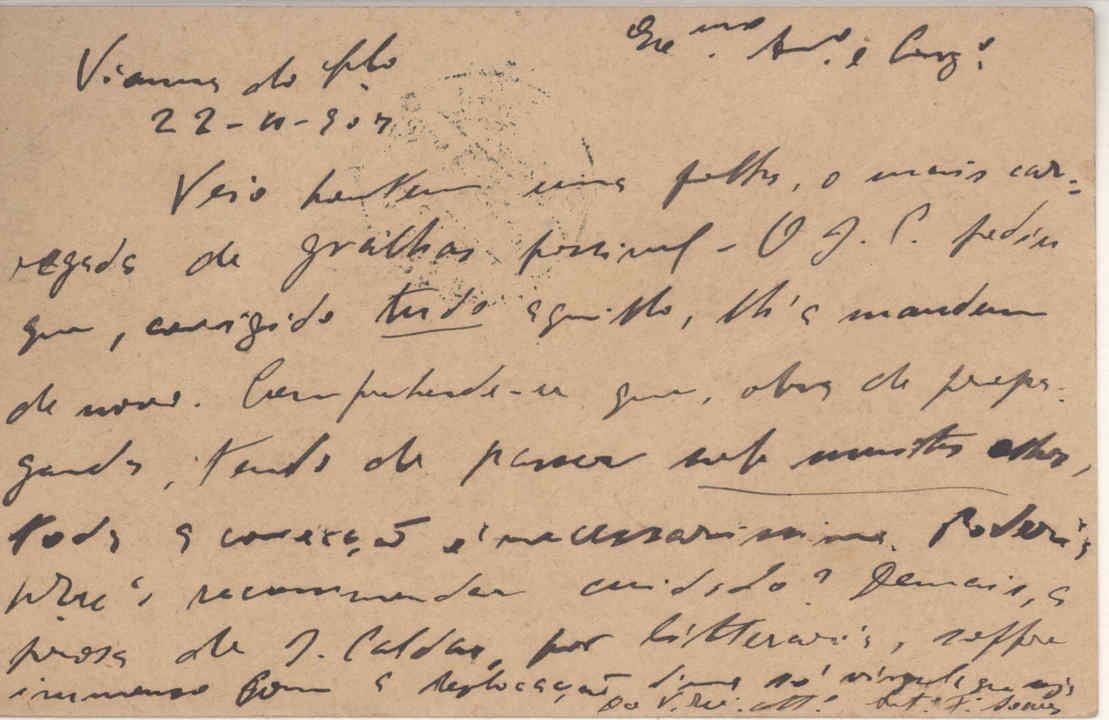 Ex.mo Am.º e Corg.º
Vianna do Cast.lo
22-11-907
Veio hontem uma folha, o mais car-
regada de gralhas possivel - O J. C. pedia
que, corrigido tudo aquillo, lh'a mandem
de novo. Comprehende-se que, obra de propa-
ganda, tendo de passar sob muitos olhos,
toda a correcção é necessarissima. Poderia
V. Ex.ª recommendar cuidado? Demais, a
prosa de J. Caldas, por litteraria, soffre
immenso com a deslocação d'uma só virgula que seja
De V. Ex.ª att.º